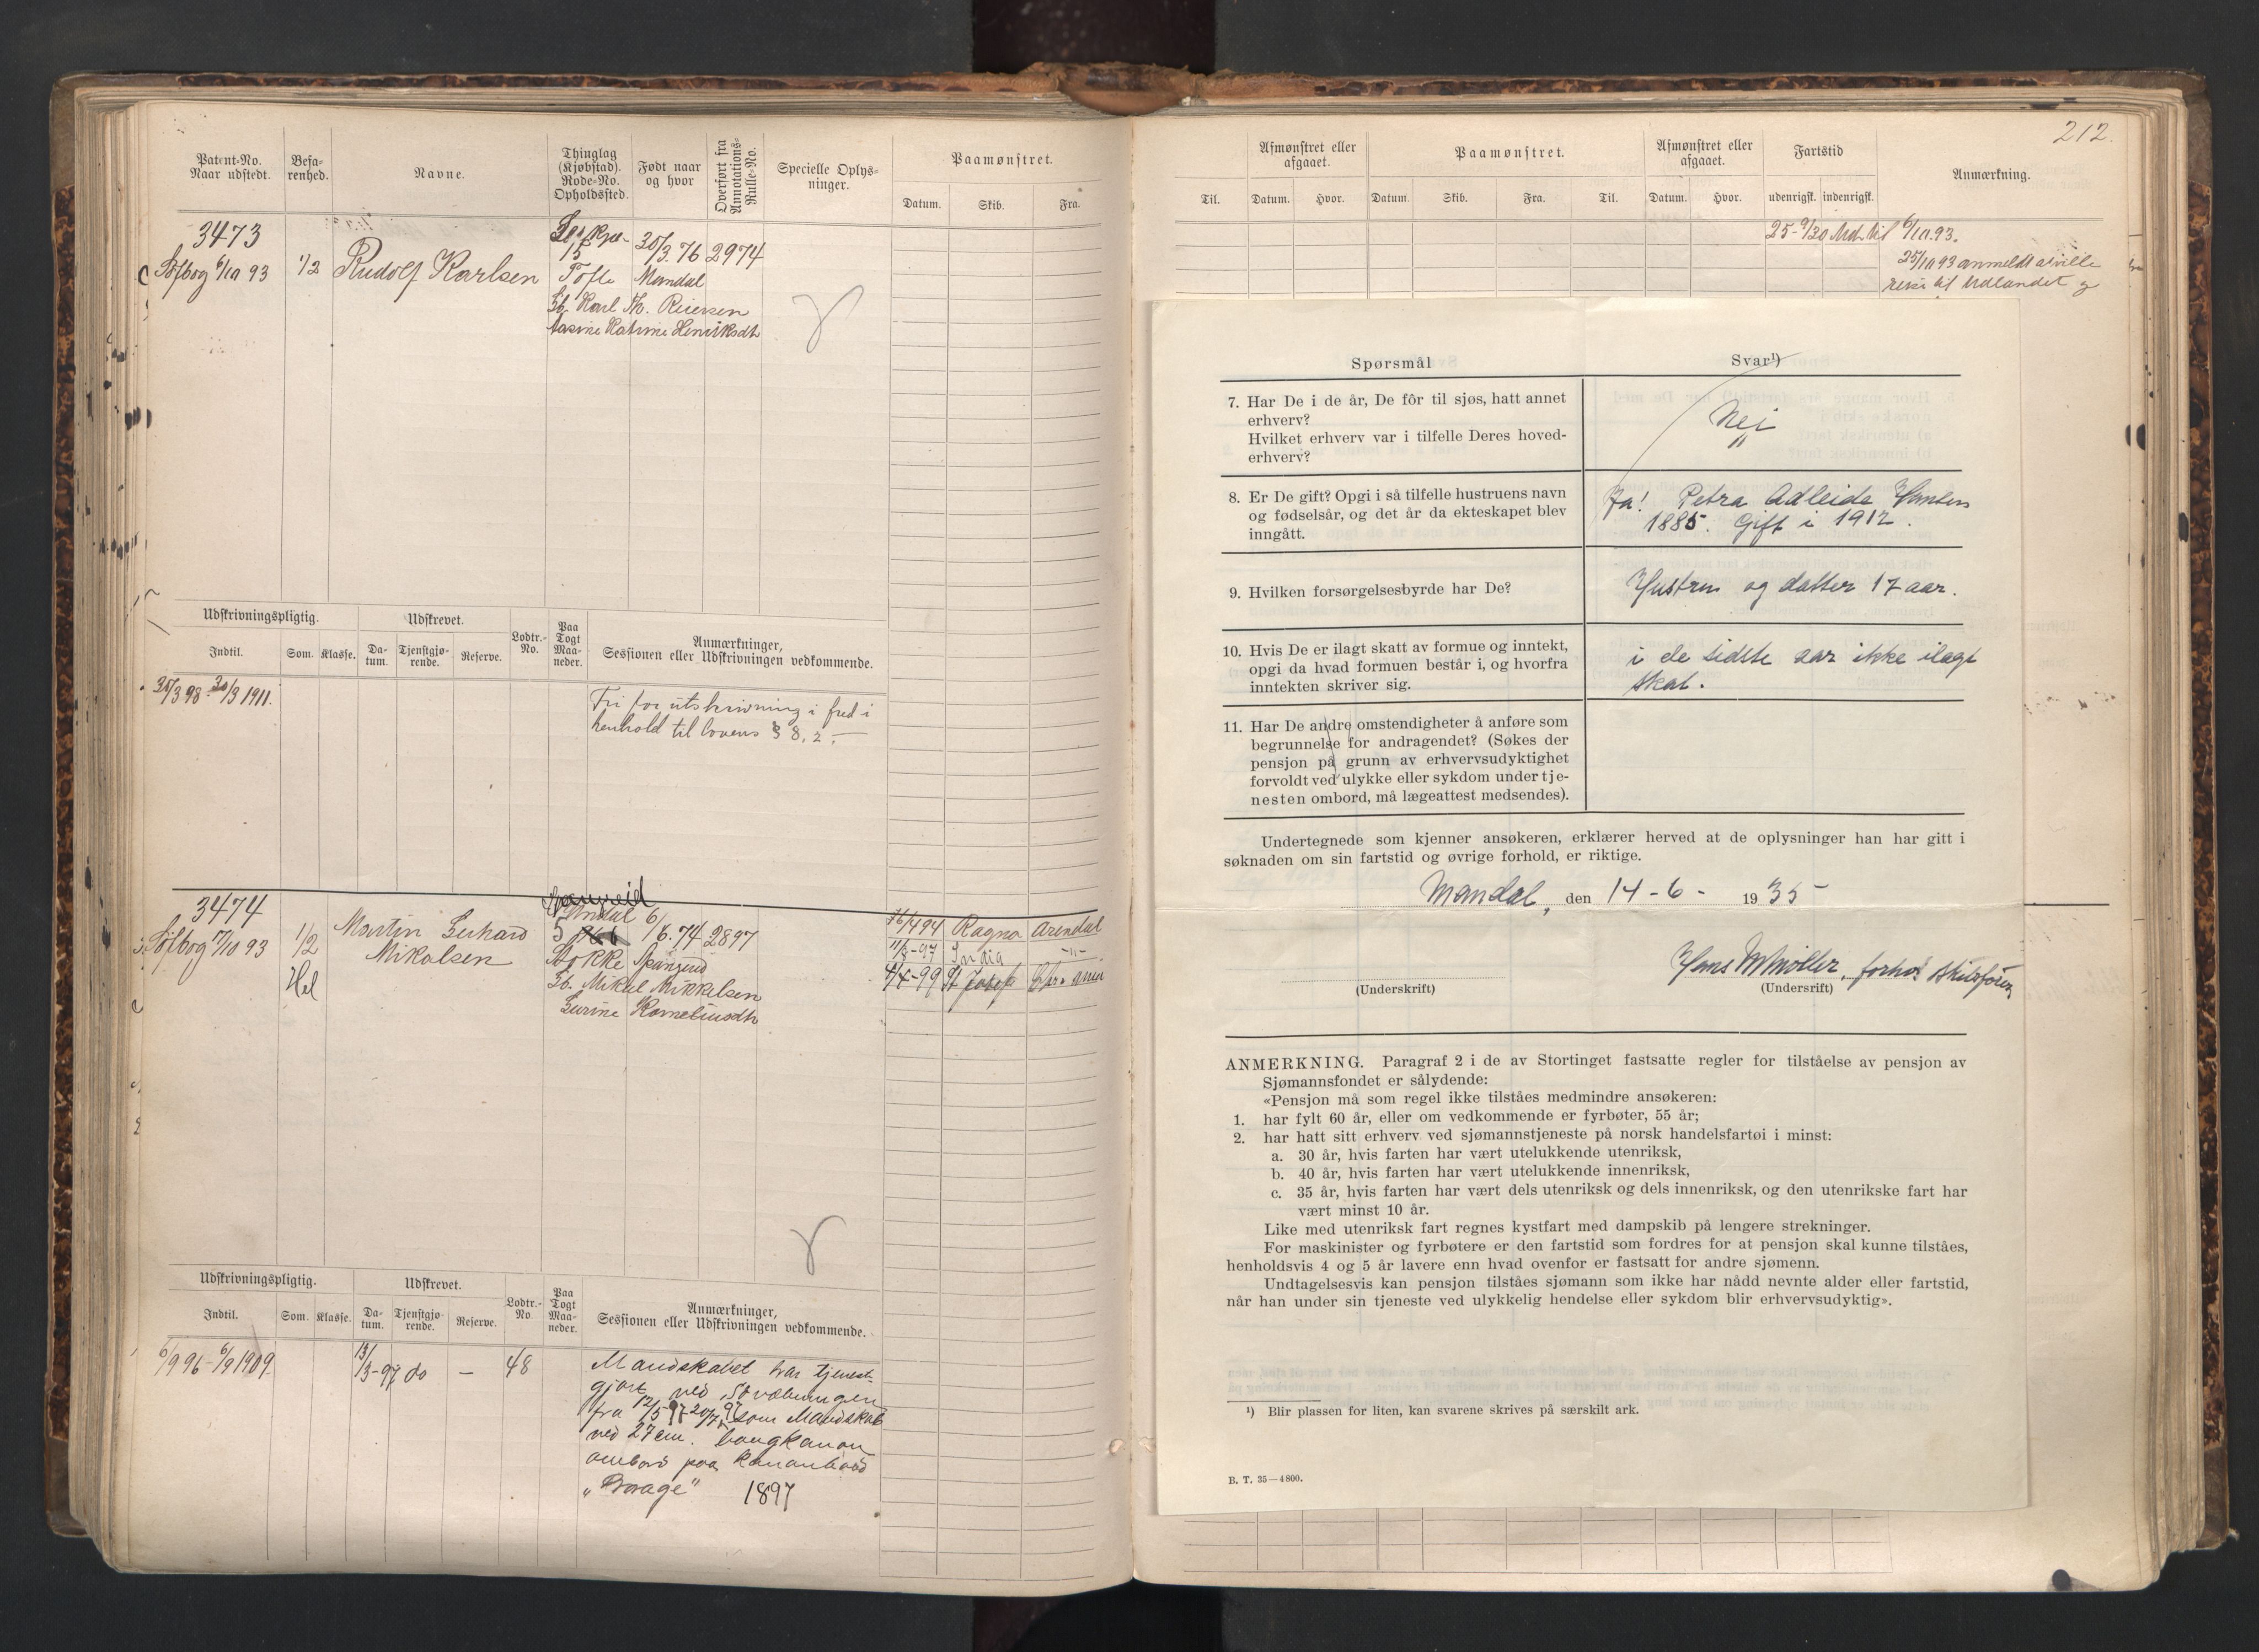 Patent-No.
Naar udstedt.
Befa-
renhed.
Navne.
Thinglag
(Kjøbstad).
Rode-No.
Opholdssted.
Født naar
og hvor
Overført fra
Annotations-
Rulle-No.
Specielle Oplys-
ninger.
Paamønstret.
Datum.
Skib.
Fra.
3473
Søfbog 6/10 93
1/2
Rudolf Karlsen
15
Tofte
30/3.76
Mandal
2974
Sb. Karl Th. Reiersen
Tasine Katrine Henriksdtr
Udskrivningspligtig.
Udskrevet.
Lodtr.-
No.
Paa
Togt
Maa-
neder.
Anmærkninger,
Sessionen eller Udskrivningen vedkommende.
Indtil.
Som.
Klasse.
Da-
tum.
Tjenstgjø-
rende.
Reserve.
30/3 98 - 30/3 1911.
Fri for utskrivning i fred i
henhold til lovens § 8, 2. —
3474
Søfbog 17/10 93
1/2
Hel
Martin Gerhard
Mikalsen
Spangreid
Undal
5
Stokke
6/6.74
Spangreid
2897
Sb. Mikal Mikkelsen
Gurine Korneliusdtr
16/4 94 Ragna Arendal
11/8-97 India -"-
4/4-99 St Josef
Udskrivningspligtig.
Udskrevet.
Lodtr.-
No.
Paa
Togt
Maa-
neder.
Anmærkninger,
Sessionen eller Udskrivningen vedkommende.
Indtil.
Som.
Klasse.
Da-
tum.
Tjenstgjø-
rende.
Reserve.
6/9 96 - 6/9 1909.
13/3-97
do
—
48
Mandskabet har tjenest-
gjort ved Skvebningen
fra 12/5 97 - 20/7 97 som Mandskab
ved 27 cm. bougkanon
ombord paa Kanonbaad
"Brage" 1897
212.
Til.
Afmønstret eller
afgaaet.
Datum.
Hvor.
Paamønstret.
Datum.
Skib.
Fra.
Til.
Afmønstret eller
afgaaet.
Datum.
Hvor.
Fartstid
udenrigsk.
indenrigsk.
Anmærkning.
25-9/30 Md. til 6/10.93.
25/10 93 anmeldt at ville
reise til Udlandet
Spørsmål
Svar¹)
7. Har De i de år, De fôr til sjøs, hatt annet
erhverv?
Hvilket erhverv var i tilfelle Deres hoved-
erhverv?
Nei
"
8. Er De gift? Opgi i så tilfelle hustruens navn
og fødselsår, og det år da ekteskapet blev
inngått.
Ja! Petra Adleide Hansen
1885. Gift i 1912.
9. Hvilken forsørgelsesbyrde har De?
Hustru og datter 17 aar.
10. Hvis De er ilagt skatt av formue og inntekt,
opgi da hvad formuen består i, og hvorfra
inntekten skriver sig.
i de sidste aar ikke ilagt
skat.
11. Har De andre omstendigheter å anføre som
begrunnelse for andragendet? (Søkes der
pensjon på grunn av erhvervsudyktighet
forvoldt ved ulykke eller sykdom under tje-
nesten ombord, må lægeattest medsendes).
Undertegnede som kjenner ansøkeren, erklærer herved at de oplysninger han har gitt i
søknaden om sin fartstid og øvrige forhold, er riktige.
Mandal, den 14-6- 1935-
Hans M Møller, forhv. skibsfører
(Underskrift)
(Undersrift)
ANMERKNING. Paragraf 2 i de av Stortinget fastsatte regler for tilståelse av pensjon av
Sjømannsfondet er sålydende:
«Pensjon må som regel ikke tilståes medmindre ansøkeren:
1. har fylt 60 år, eller om vedkommende er fyrbøter, 55 år;
2. har hatt sitt erhverv ved sjømannstjeneste på norsk handelsfartøi i minst:
a. 30 år, hvis farten har vært utelukkende utenriksk,
b. 40 år, hvis farten har vært utelukkende innenriksk,
c. 35 år, hvis farten har vært dels utenriksk og dels innenriksk, og den utenrikske fart har
vært minst 10 år.
Like med utenriksk fart regnes kystfart med dampskib på lengere strekninger.
For maskinister og fyrbøtere er den fartstid som fordres for at pensjon skal kunne tilståes,
henholdsvis 4 og 5 år lavere enn hvad ovenfor er fastsatt for andre sjømenn.
Undtagelsesvis kan pensjon tilståes sjømann som ikke har nådd nevnte alder eller fartstid,
når han under sin tjeneste ved ulykkelig hendelse eller sykdom blir erhvervsudyktig».
¹) Blir plassen for liten, kan svarene skrives på særskilt ark.
B. T. 35—4800.